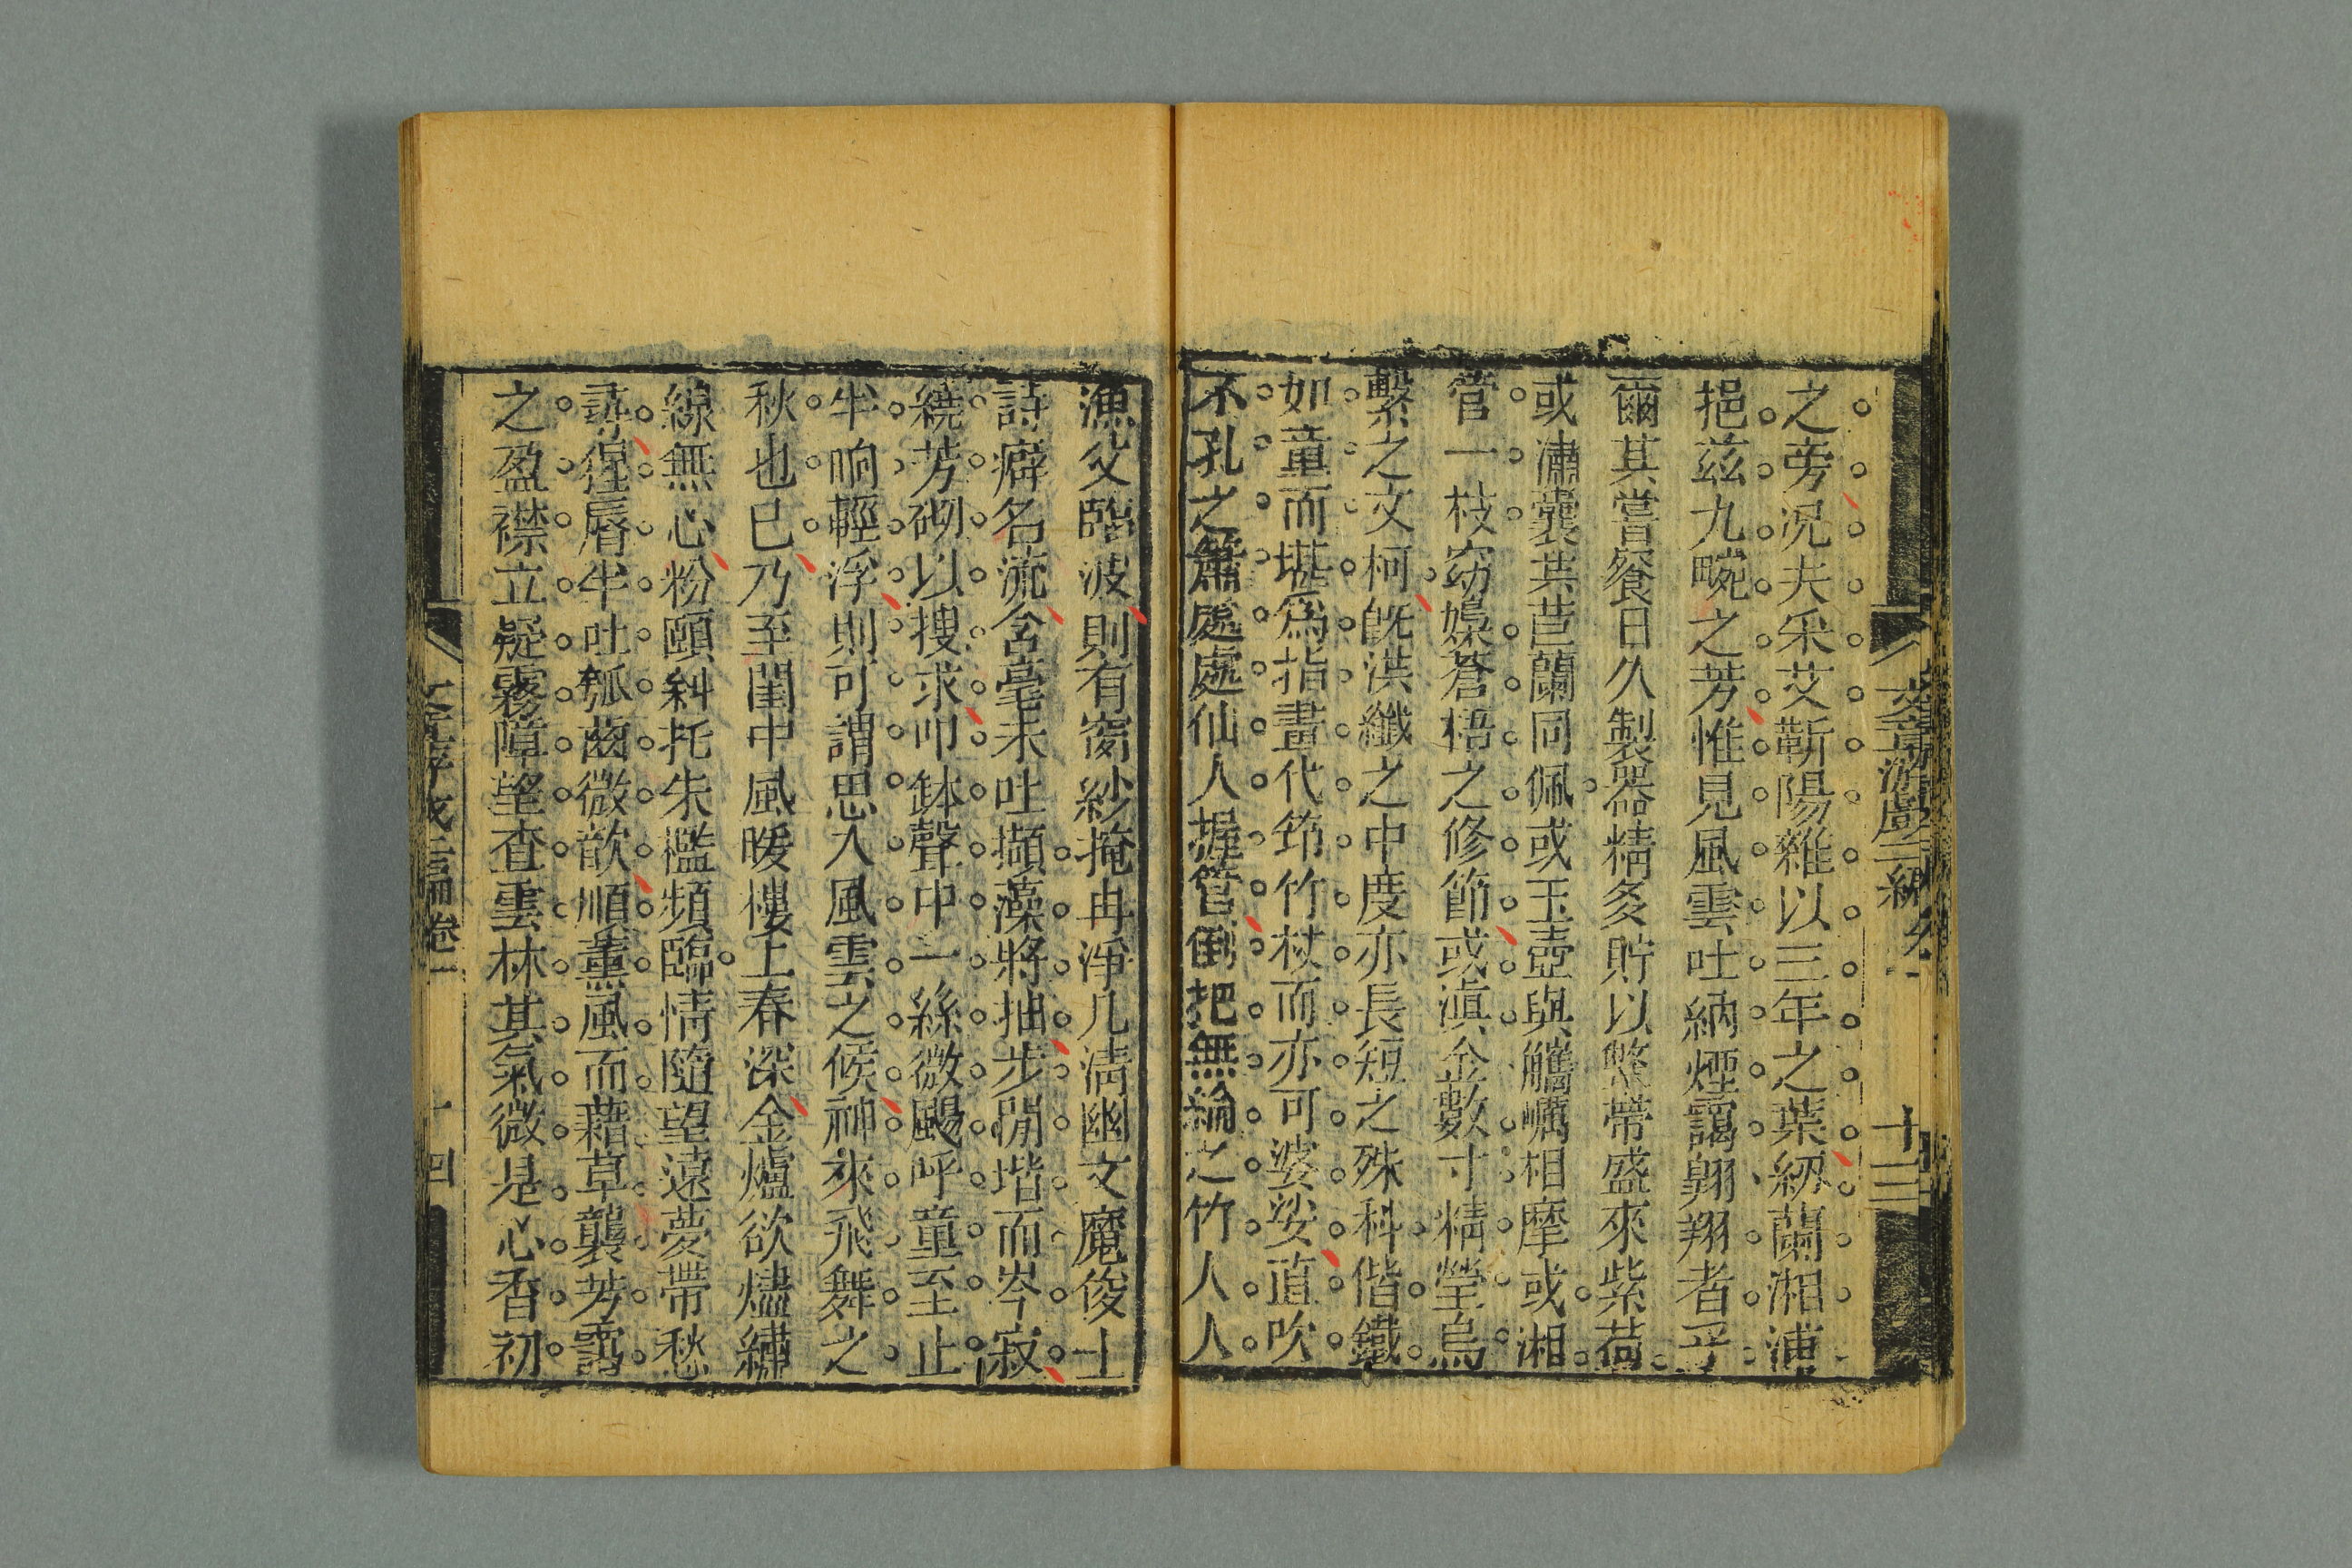 文章游戲二編 卷一 十三
之旁況夫采艾蘄陽雜以三年之葉紉蘭湘浦
挹茲九畹之芳惟見風雲吐納煙靄翺翔者乎
爾其嘗餐日久製器精多貯以鞶帶盛來紫荷
或潚囊共茝蘭同佩或玉壺與觿礪相摩或湘
管一枝窈嫋蒼梧之修節或滇金數寸精瑩烏
繫之文柯旣洪纖之中度亦長短之殊科偕鐵
如童而堪爲指畫代筇竹杖而亦可婆娑直吹
不孔之簫處處仙人握管倒把無綸之竹人人
漁父臨波則有窗紗掩冉淨几淸幽文魔俊士
詩癖名流含毫未吐擷藻將抽步閒堦而岑寂
繞芳砌以搜求叩缽聲中一絲微颺呼童至止
半晌輕浮則可謂思入風雲之候神來飛舞之
秋也已乃至閨中風暖樓上春深金爐欲燼繡
線無心粉頤斜托朱檻頻臨情隨望遠夢帶愁
尋猩脣半吐瓠齒微歆順薰風而藉草襲芳靄
之盈襟立疑霧障望杳雲林其氣微是心香初
文章游戲二編 卷一 十四